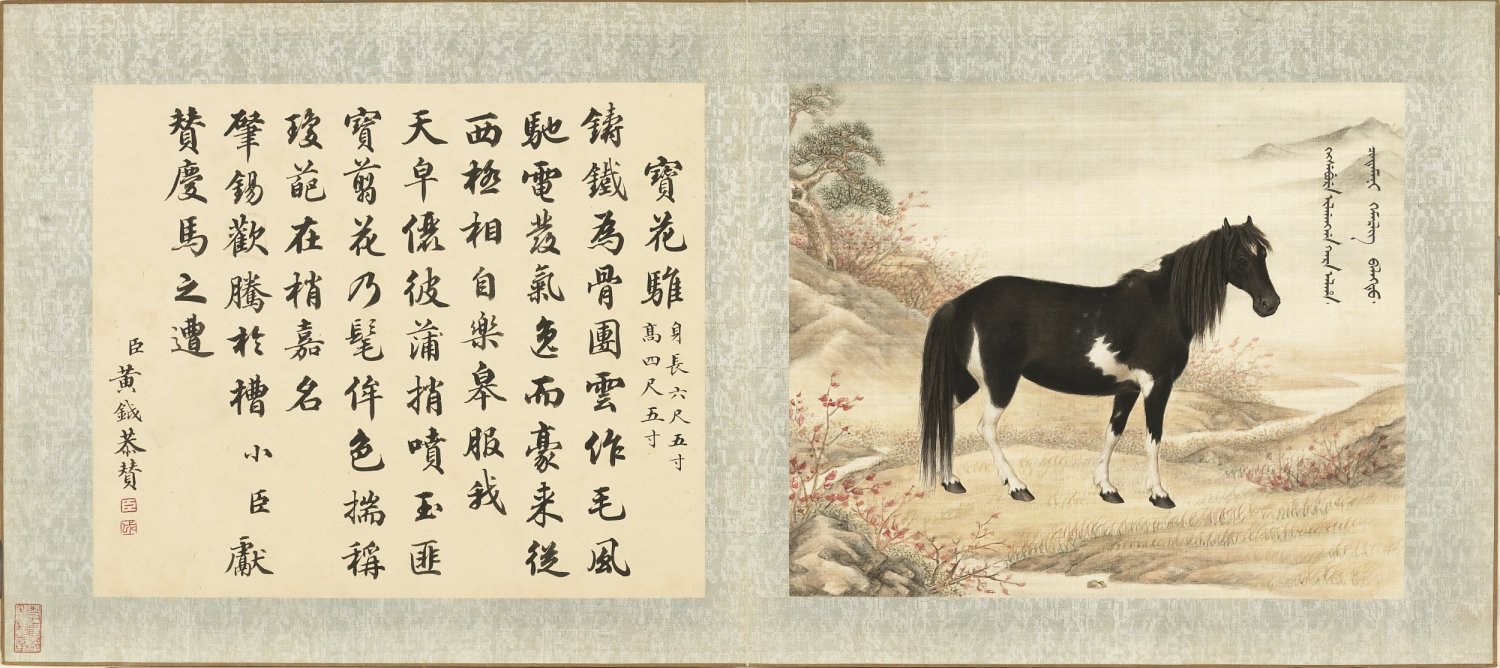 寶花騅
身長六尺五寸
高四尺五寸
鑄鐵為骨團雲作毛風
馳電發氣逸而豪来從
西極相自樂皋服我
天皁儷彼蒲捎噴玉匪
寶翦花乃髦侔色揣稱
瓊葩在梢嘉名
肇錫歡騰於槽小臣獻
賛慶馬之遭
臣黃鉞恭賛